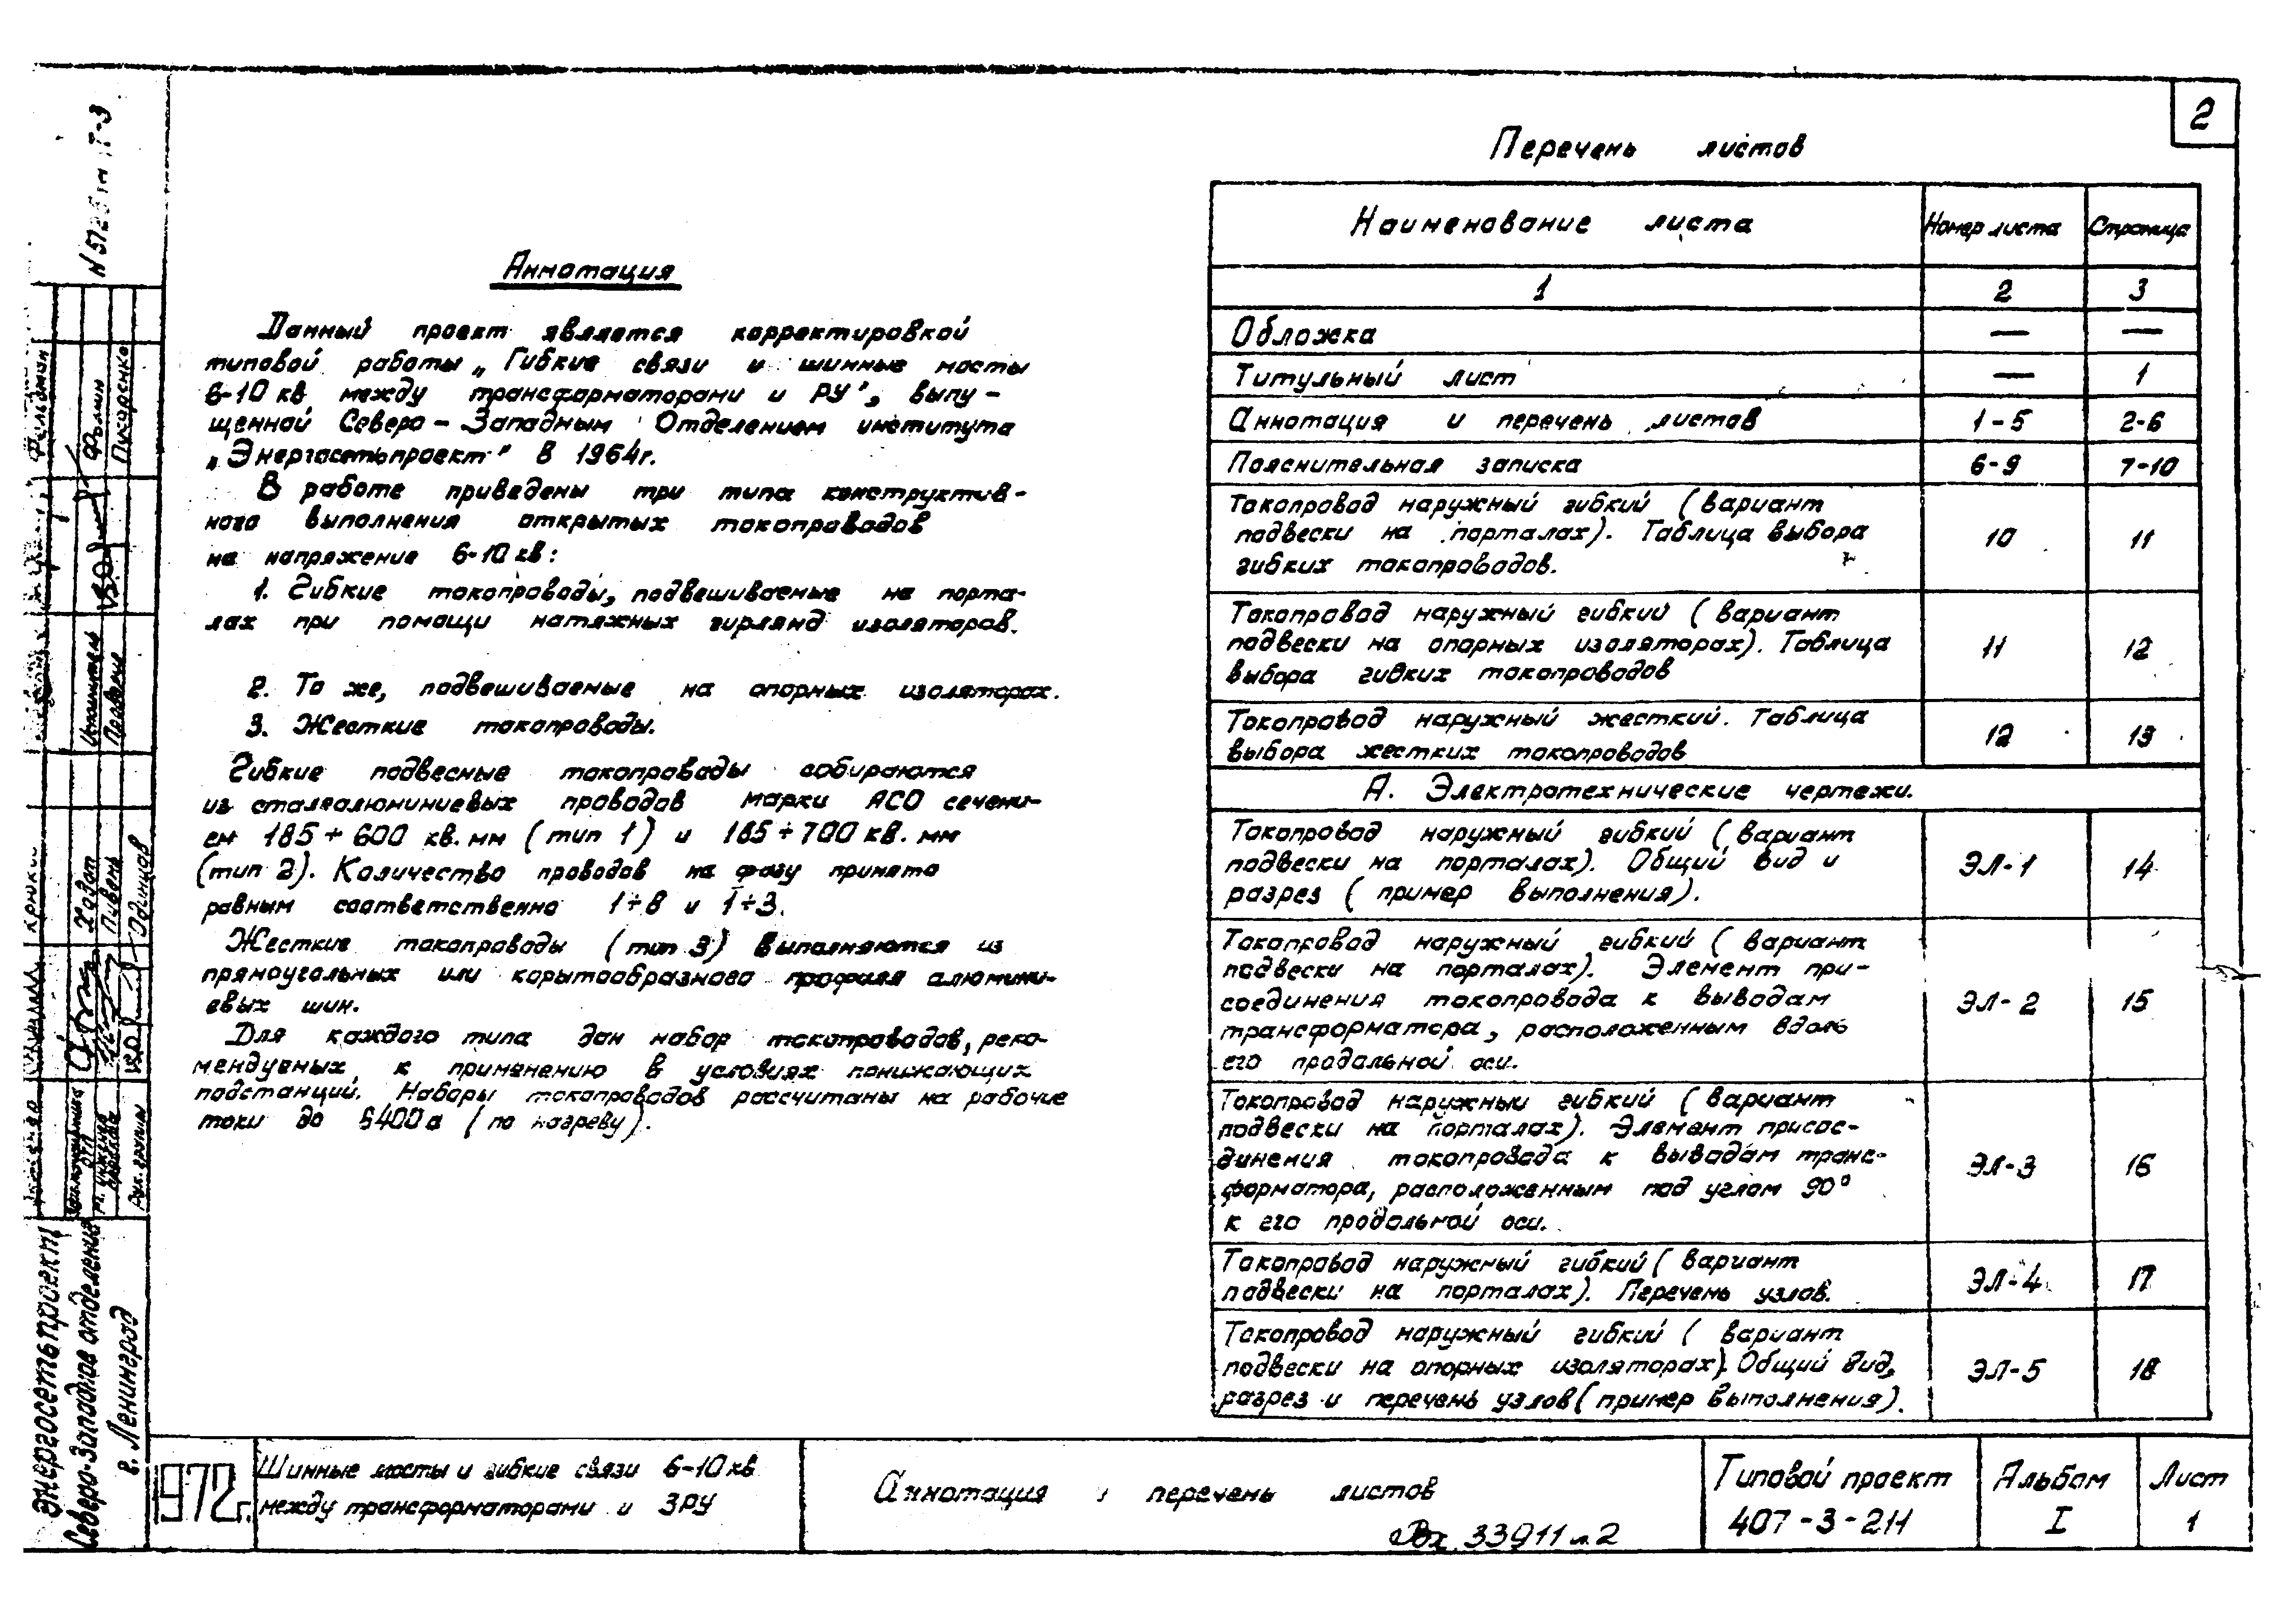 2
Аннотация
Данный проект является корректировкой
типовой работы „Гибкие связи и шинные мосты
6-10 кв между трансформаторами и РУ", выпу-
щенной Северо-Западным Отделением института
„Энергосетьпроект" в 1964г.
В работе приведены три типа конструктив-
ного выполнения открытых токопроводов
на напряжение 6-10 кв:
1. Гибкие токопроводы, подвешиваемые на порта-
лах при помощи натяжных гирлянд изоляторов.
2. То же, подвешиваемые на опорных изоляторах.
3. Жесткие токопроводы.
Гибкие подвесные токопроводы собираются
из сталеалюминиевых проводов марки АСО сечени-
ем 185÷600 кв.мм (тип 1) и 185÷700 кв. мм
(тип 2). Количество проводов на фазу принято
равным соответственно 1÷8 и 1÷3.
Жесткие токопроводы (тип 3) выполняются из
прямоугольных или корытообразного профиля алюмини-
евых шин.
Для каждого типа дан набор токопроводов, реко-
мендуемых к применению в условиях понижающих
подстанций. Наборы токопроводов рассчитаны на рабочие
токи до 6400а (по нагреву).
Перечень листов
Наименование листа Номер листа Страница
1 2 3
Обложка — —
Титульный лист — 1
Аннотация и перечень листов 1-5 2-6
Пояснительная записка 6-9 7-10
Токопровод наружный гибкий (вариант
подвески на порталах). Таблица выбора
гибких токопроводов. 10 11
Токопровод наружный гибкий (вариант
подвески на опорных изоляторах). Таблица
выбора гибких токопроводов 11 12
Токопровод наружный жесткий. Таблица
выбора жестких токопроводов 12 13
А. Электротехнические чертежи.
Токопровод наружный гибкий (вариант
подвески на порталах). Общий вид и
разрез (пример выполнения). ЭЛ-1 14
Токопровод наружный гибкий (вариант
подвески на порталах). Элемент при-
соединения токопровода к выводам
трансформатора, расположенным вдоль
его продольной оси. ЭЛ-2 15
Токопровод наружный гибкий (вариант
подвески на порталах). Элемент присое-
динения токопровода к выводам транс-
форматора, расположенным под углом 90°
к его продольной оси. ЭЛ-3 16
Токопровод наружный гибкий (вариант
подвески на порталах). Перечень узлов. ЭЛ-4 17
Токопровод наружный гибкий (вариант
подвески на опорных изоляторах). Общий вид,
разрез и перечень узлов (пример выполнения). ЭЛ-5 18
Фельдман
Фомин
Пукаренко
Исполнител
Ходот
Пивень
Одинцов
Рук. группы
Энергосетьпроект
Северо-Западное отделение
г. Ленинград
1972г.
Шинные мосты и гибкие связи 6-10 кв
между трансформаторами и ЗРУ
Аннотация и перечень листов
Вх 33911 л.2
Типовой проект
407-3-211
Альбом
I
Лист
1